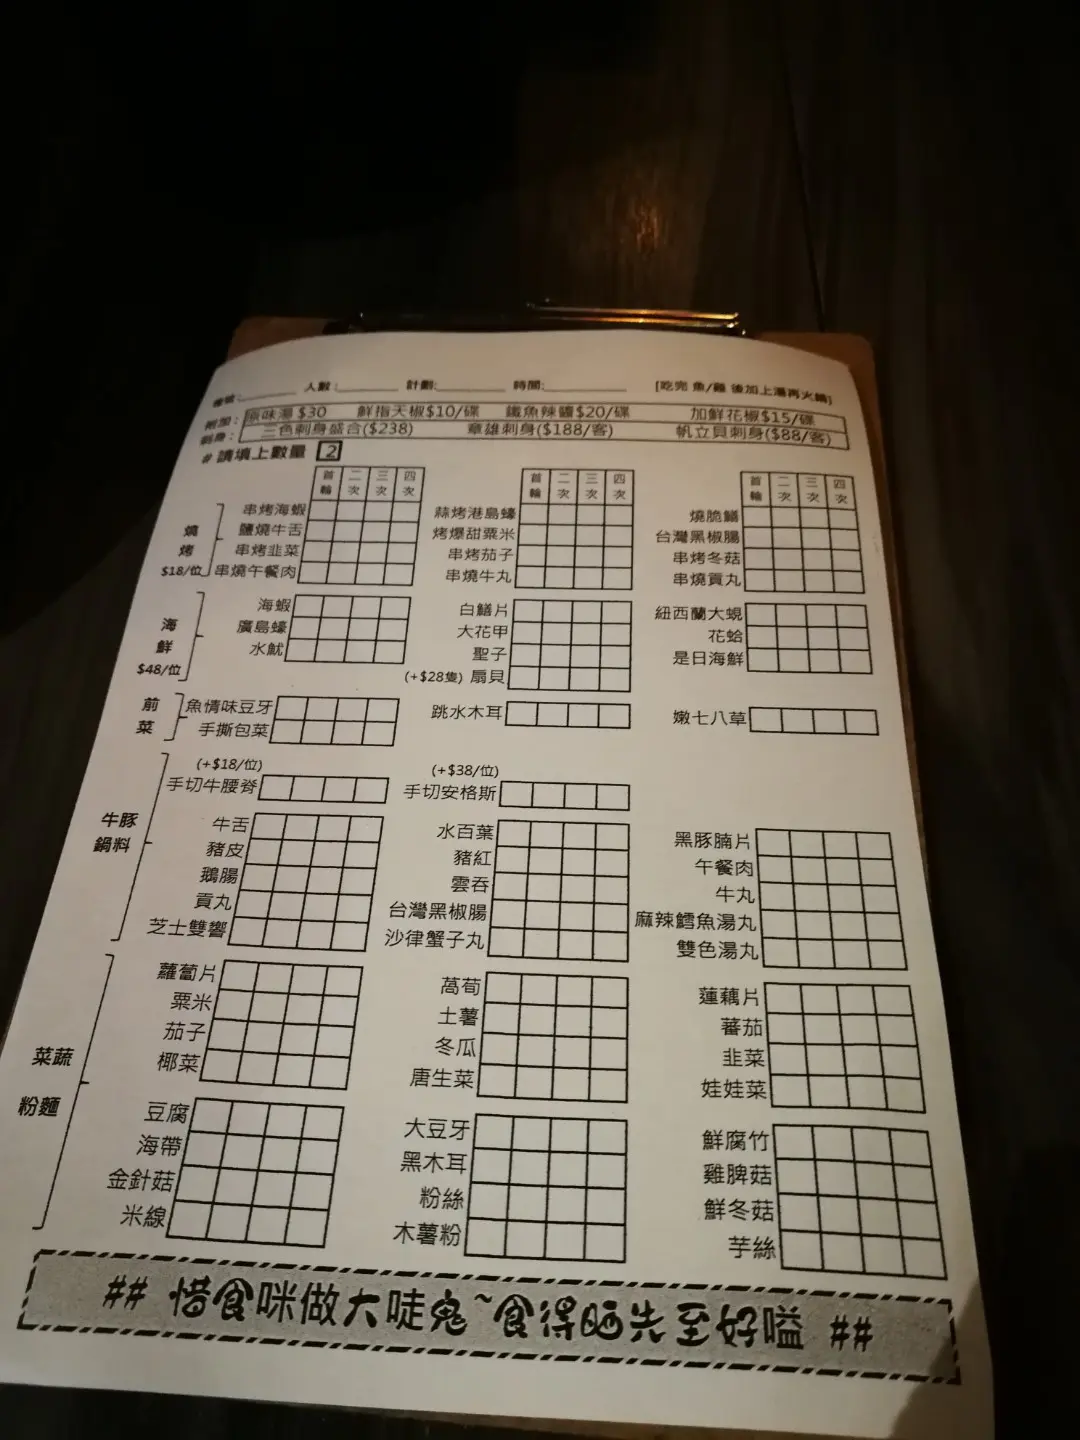 人數:________ 計劃:________ 時間:________ [吃完 魚/雞 後加上湯再火鍋]
附加: 原味湯 $30 鮮指天椒$10/碟 鐵魚辣醬$20/碟 加鮮花椒$15/碟
刺身: 三色刺身盛合($238) 章雄刺身($188/客) 帆立貝刺身($88/客)
# 請填上數量 2
首輪 二次 三次 四次 首輪 二次 三次 四次 首輪 二次 三次 四次
燒烤 $18/位
串烤海蝦 蒜烤港島蠔 燒脆鱔
鹽燒牛舌 烤爆甜粟米 台灣黑椒腸
串烤韭菜 串烤茄子 串烤冬菇
串燒午餐肉 串燒牛丸 串燒貢丸
海鮮 $48/位
海蝦 白鱔片 紐西蘭大蜆
廣島蠔 大花甲 花蛤
水魷 聖子 是日海鮮
(+$28隻) 扇貝
前菜
魚情味豆牙 跳水木耳 嫩七八草
手撕包菜
牛豚鍋料
(+$18/位) (+$38/位)
手切牛腰脊 手切安格斯
牛舌 水百葉 黑豚腩片
豬皮 豬紅 午餐肉
鵝腸 雲吞 牛丸
貢丸 台灣黑椒腸 麻辣鱈魚湯丸
芝士雙響 沙律蟹子丸 雙色湯丸
菜蔬
粉麵
蘿蔔片 萵荀 蓮藕片
粟米 土薯 蕃茄
茄子 冬瓜 韭菜
椰菜 唐生菜 娃娃菜
豆腐 大豆牙 鮮腐竹
海帶 黑木耳 雞脾菇
金針菇 粉絲 鮮冬菇
米線 木薯粉 芋絲
## 惜食咪做大唗鬼~食得晒先至好嗌 ##